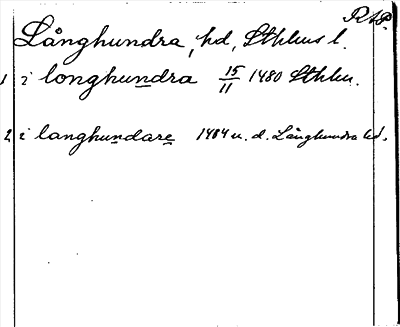 Långhundra, hd, Sthlms l.
1 i longhundra 15/11 1480 Sthlm.
2 i langhundare 1484 u. d. Långhundra hd.